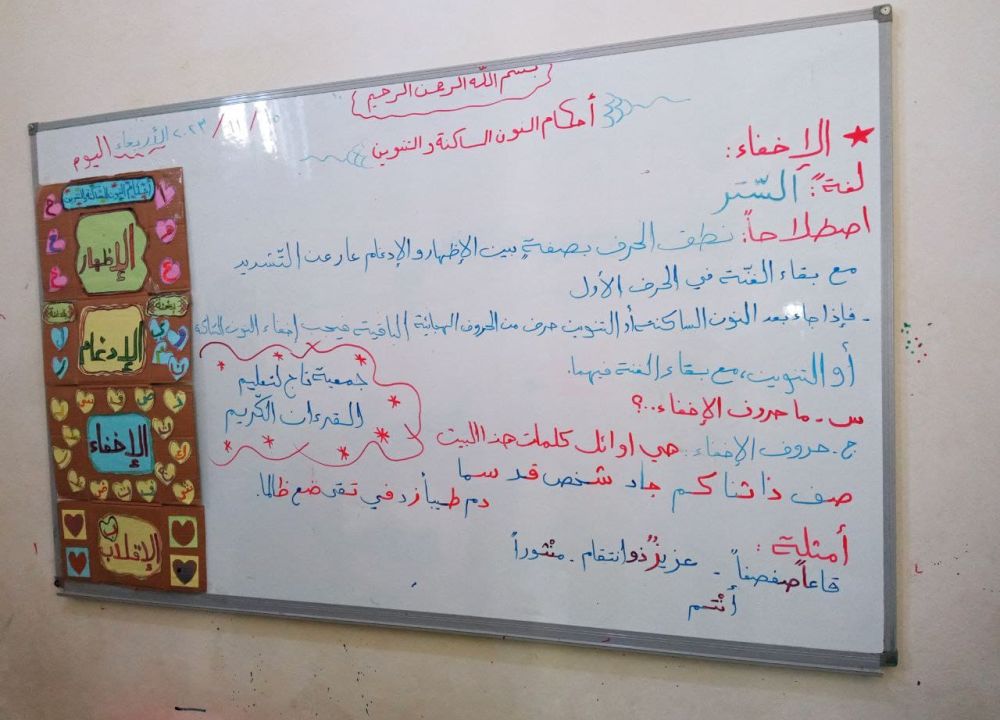 بسم الله الرحمن الرحيم
أحكام النون الساكنة والتنوين
اليوم الأربعاء ١١ / ٢٠٢٣
★ الإخفاء:
لغة: السّتر
اصطلاحاً: نطق الحرف بصفةٍ بين الإظهار والإدغام عار عن التّشديد
مع بقاء الغنّة في الحرف الأول
- فإذا جاء بعد النون الساكنة أو التنوين حرف من الحروف الهجائية الباقية فيجب إخفاء النون الساكنة
أو التنوين، مع بقاء الغنة فيهما.
س - ما حروف الإخفاء..؟
ج - حروف الإخفاء: هي اوائل كلمات هذا البيت
صف ذا ثنا كم جاد شخص قد سما
دم طيباً زد في تقى ضع ظالما.
أمثلة:
قاعاً صفصفاً - عزيزٌ ذو انتقام - منْثوراً
أنْتم
جمعية تاج لتعليم
القرءان الكريم
أحكام النون الساكنة والتنوين
الإظهار
الإدغام
الإخفاء
الإقلاب